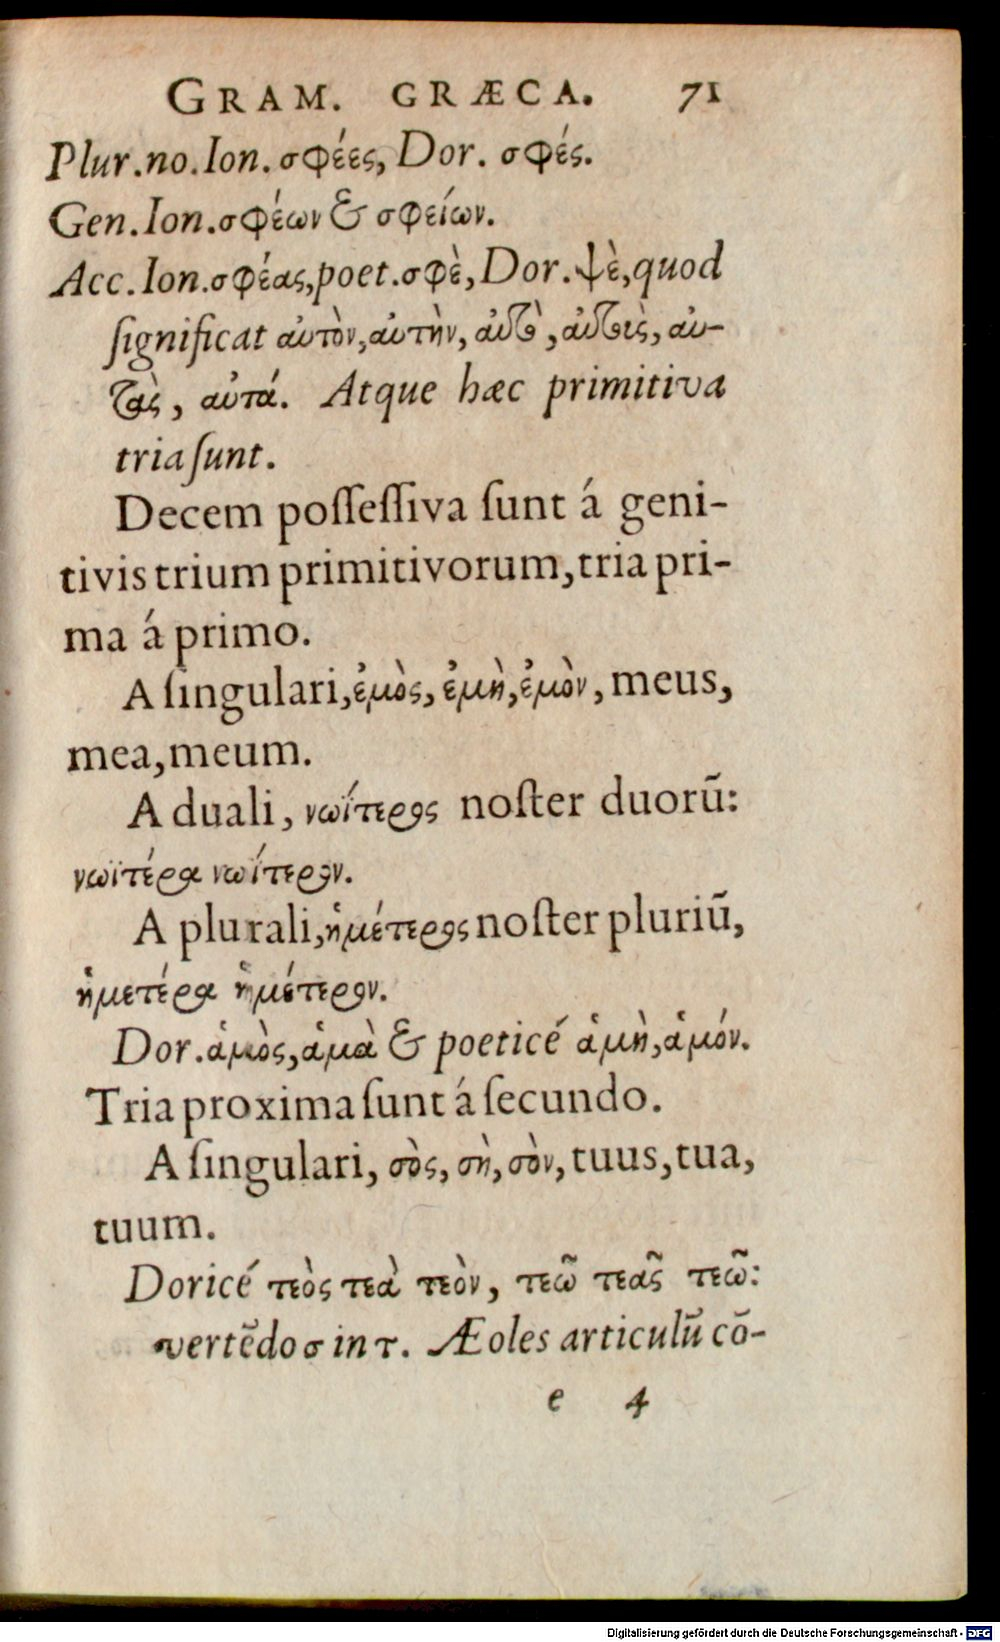 GRAM. GRÆCA. 71
Plur. no. Ion. σφέες, Dor. σφές.
Gen. Ion. σφέων & σφείων.
Acc. Ion. σφέας, poet. σφὲ, Dor. ψὲ, quod
ſignificat αὐτὸν, αὐτὴν, αὐτὸ, αὐτοὺς, αὐ-
τὰς, αὐτά. Atque hæc primitiva
tria ſunt.
Decem poſſeſſiva ſunt á geni-
tivis trium primitivorum, tria pri-
ma á primo.
A ſingulari, ἐμὸς, ἐμὴ, ἐμὸν, meus,
mea, meum.
A duali, νωΐτερος noſter duorū:
νωϊτέρα νωΐτερον.
A plurali, ἡμέτερος noſter pluriū,
ἡμετέρα ἡμέτερον.
Dor. ἁμὸς, ἁμὰ & poeticé ἁμὴ, ἁμόν.
Tria proxima ſunt á ſecundo.
A ſingulari, σὸς, σὴ, σὸν, tuus, tua,
tuum.
Doricé τεὸς τεὰ τεὸν, τεῶ τεᾶς τεῶ:
vertēdo σ in τ. Æoles articulū cō-
e 4
Digitalisierung gefördert durch die Deutsche Forschungsgemeinschaft - DFG